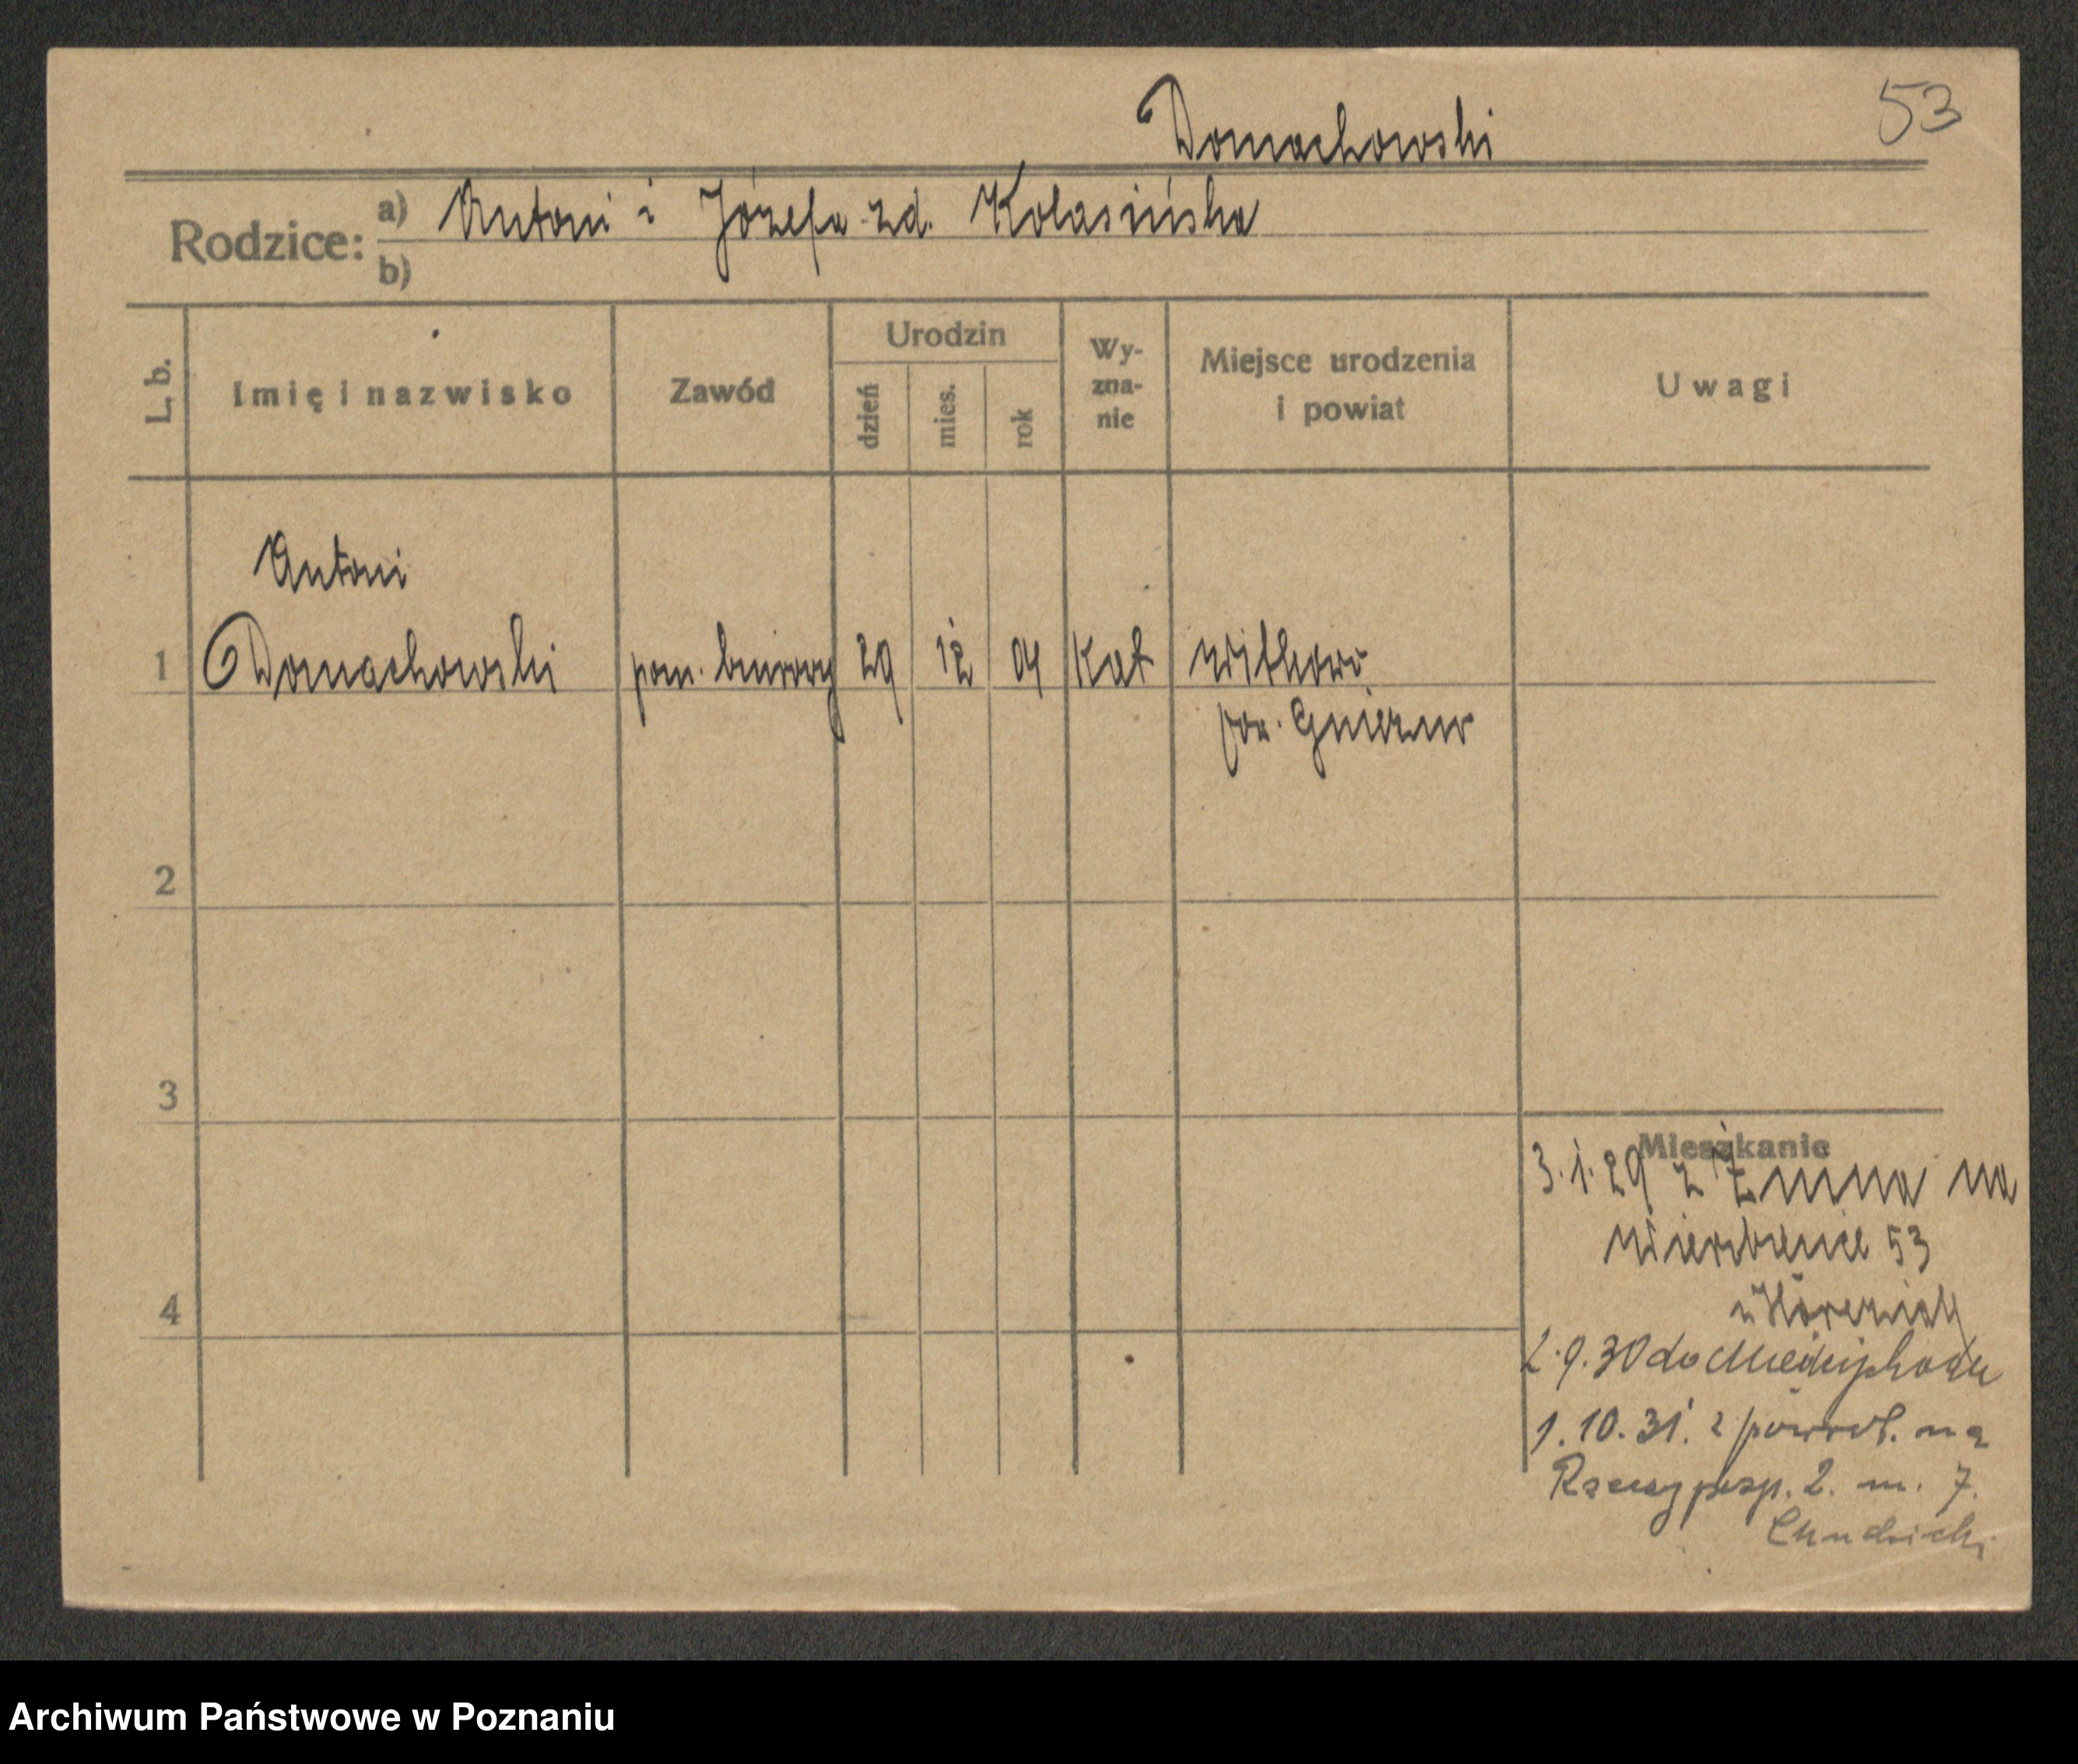 53
Domachowski
Rodzice: a) Antoni i Józefa zd. Kolasińska
b)
L. b.
Imię i nazwisko
Zawód
Urodzin
dzień
mies.
rok
Wy-
zna-
nie
Miejsce urodzenia
i powiat
Uwagi
Antoni
1 Domachowski pom. biurowy 29 12 04 Kat Witkowo
pow. Gniezno
2
3
4
Mieszkanie
3.1.29 z Żnina na
Wierzbięcice 53
2.9.30 do Międzychodu
1.10.31. z powrot. na
Rzeczyposp. 2. m. 7.
Archiwum Państwowe w Poznaniu